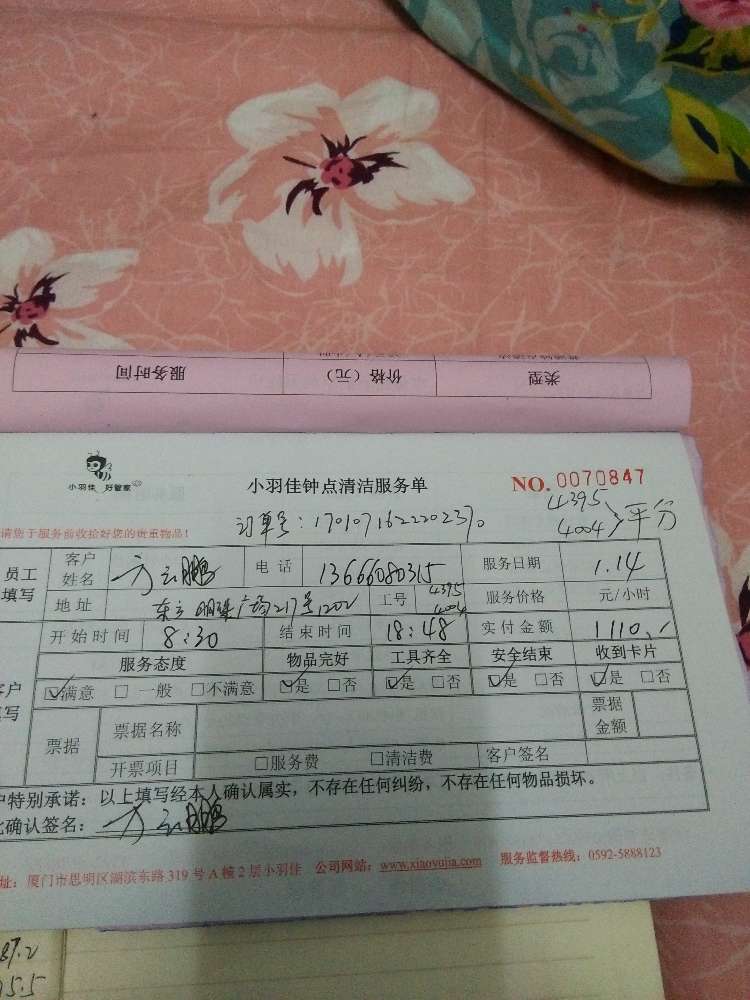 类型 价格（元） 服务时间
小羽佳 好管家
小羽佳钟点清洁服务单 NO. 0070847
请您于服务前收拾好您的贵重物品！
订单号：1701071622202370
4395
4004 平分
员工填写 客户姓名 方云鹏 电话 13666080315 服务日期 1.14
地址 东方明珠广场217号1202 工号 4395 4004 服务价格 元/小时
开始时间 8:30 结束时间 18:48 实付金额 1110
服务态度 物品完好 工具齐全 安全结束 收到卡片
☑满意 □一般 □不满意 ☑是 □否 ☑是 □否 ☑是 □否 ☑是 □否
户
写
票据 票据名称 票据金额
开票项目 □服务费 □清洁费 客户签名
户特别承诺：以上填写经本人确认属实，不存在任何纠纷，不存在任何物品损坏。
确认签名：方云鹏
址：厦门市思明区湖滨东路319号A幢2层小羽佳 公司网站：www.xiaoyujia.com 服务监督热线：0592-5888123
87.2
75.5